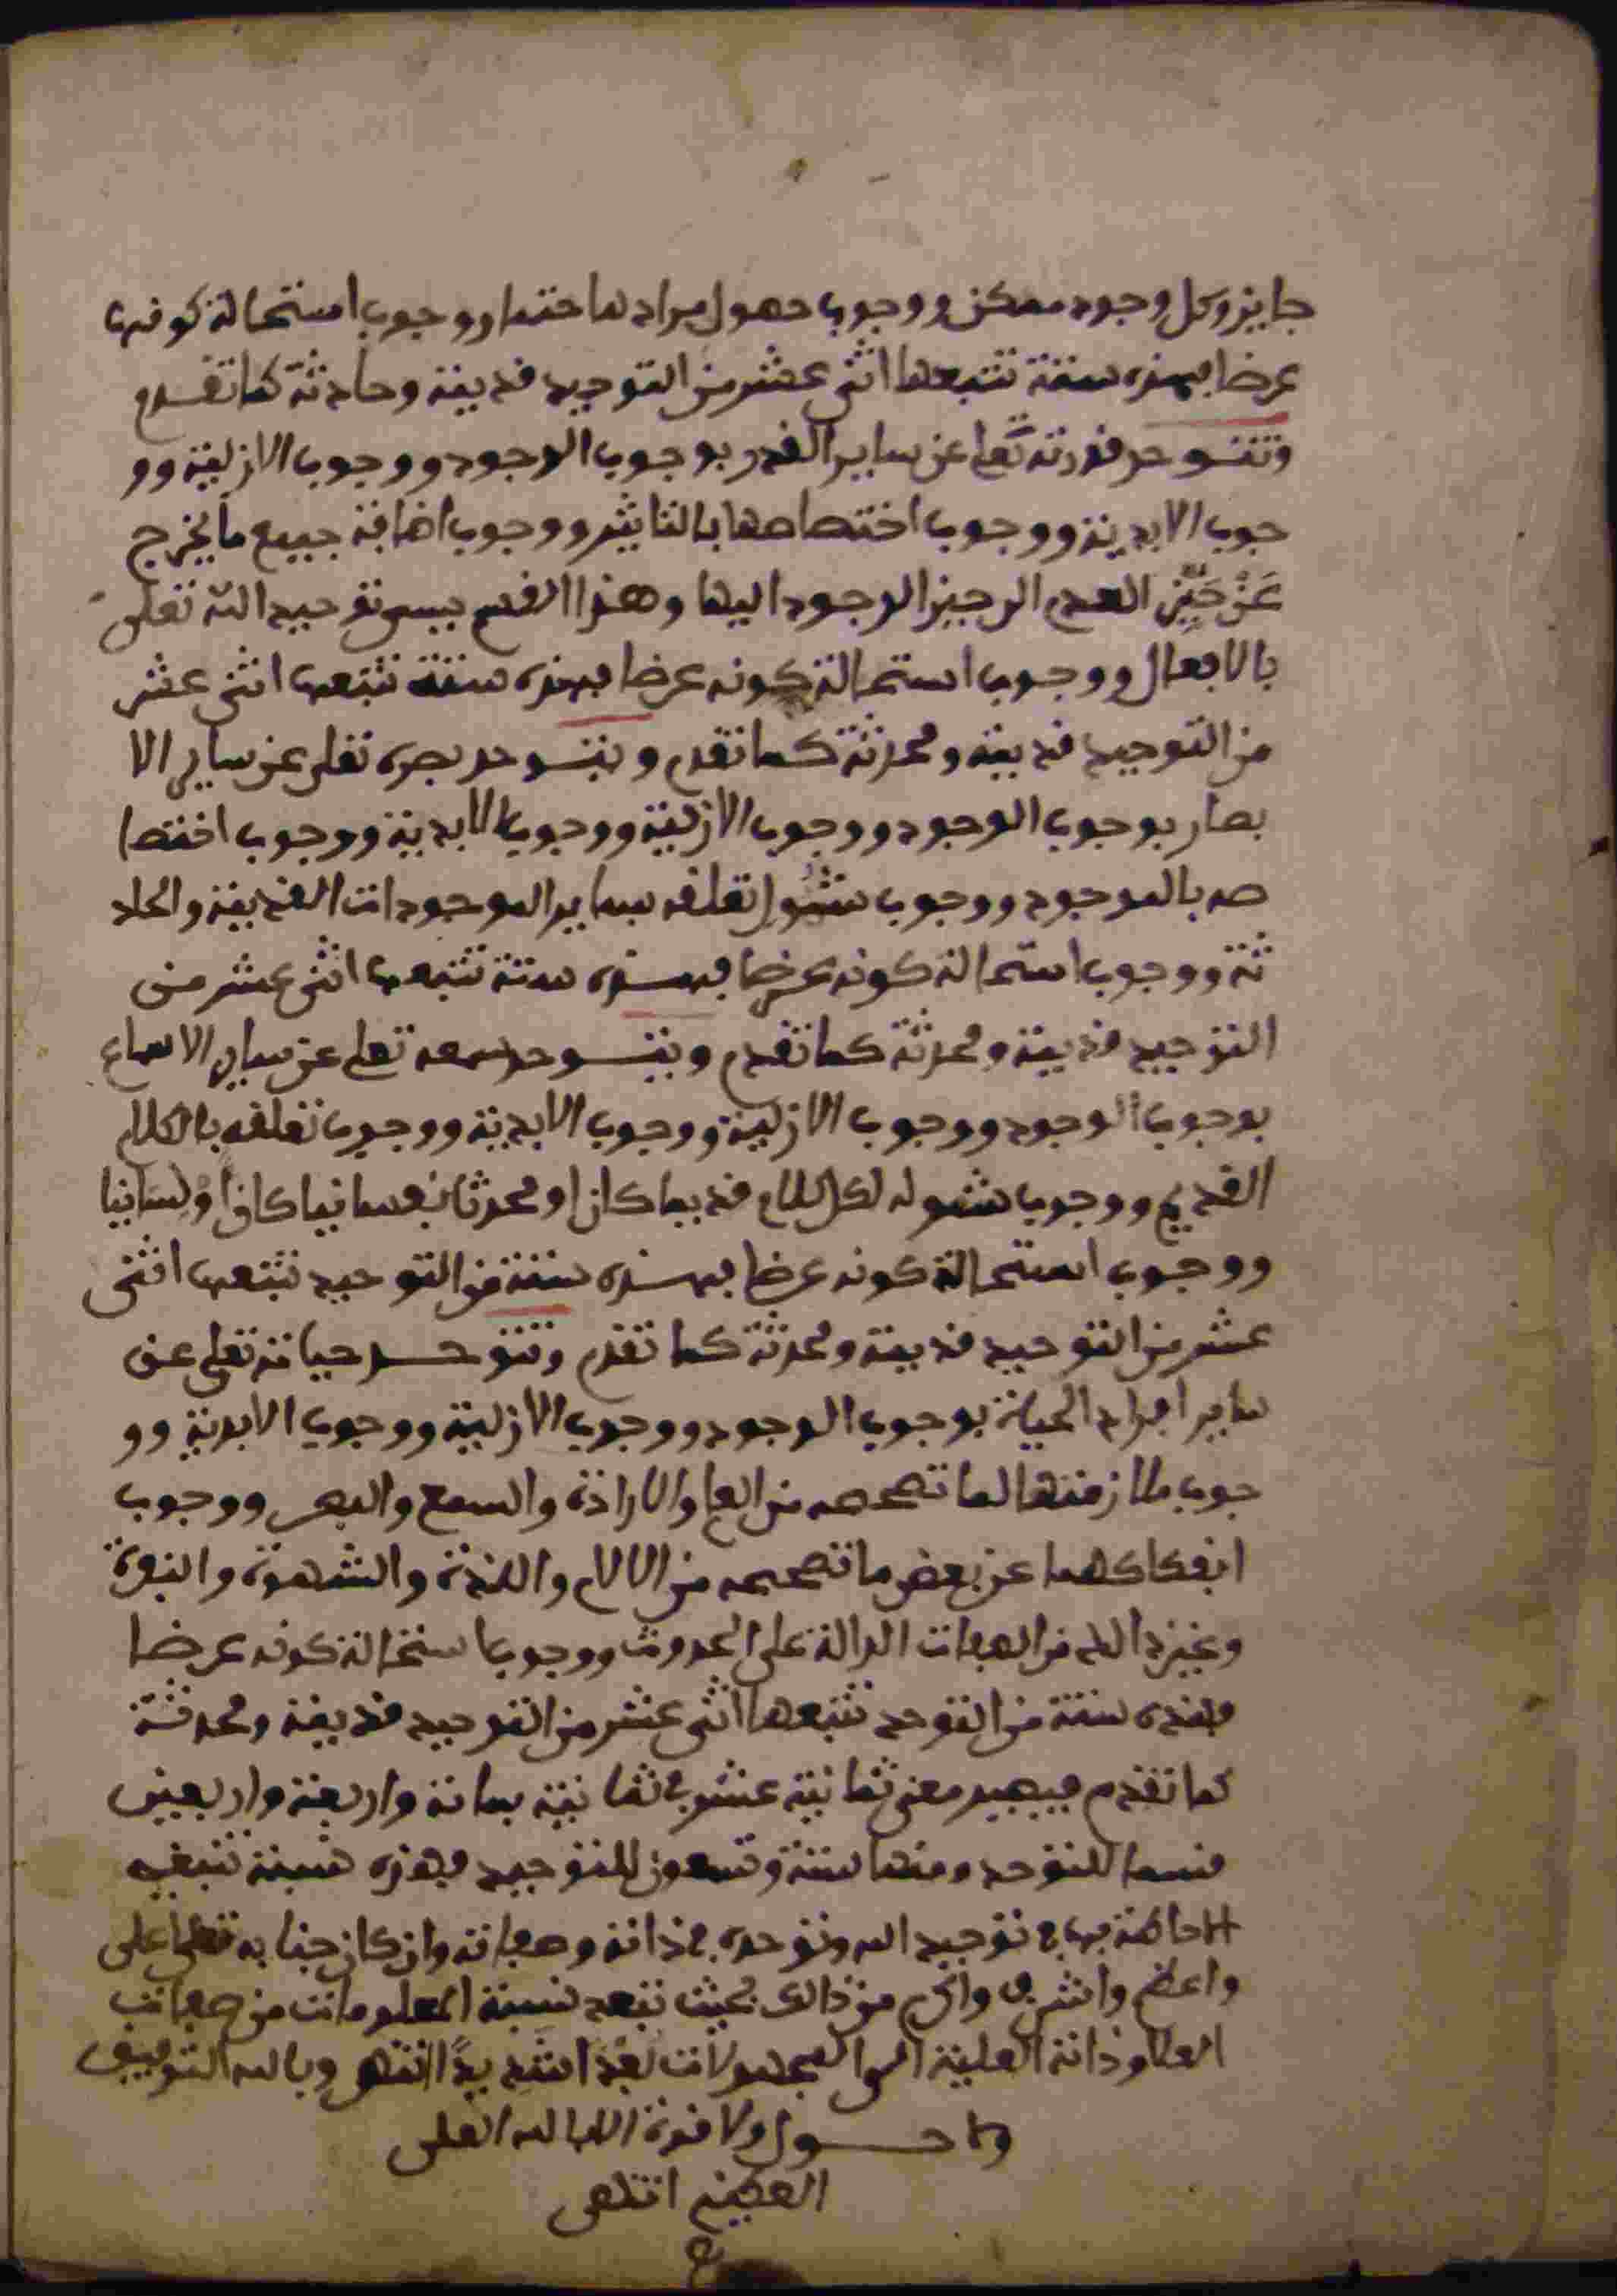 جايز وكل وجود ممكن ووجوب حصول مرادها حتما ووجوب استحالة كونها
عرضا فهذه ستة تتبعها اثنى عشر من التوحيد قديمة وحادثة كما تقدم
وتتوحد قدرته تعلى عن ساير القدر بوجوب الوجود ووجوب الازلية وو
جوب الابدية ووجوب اختصاصها بالتاثير ووجوب اضافة جميع ما يخرج
عَنْ حَيِّزِ العدم الى حيز الوجود اليها وهذا القسم يسمى توحيد الله تعلى
بالافعال ووجوب استحالة كونه عرضا فهذه ستة تتبعها اثنى عشر
من التوحيد قديمة ومحدثة كما تقدم ويتوحد بصره تعلى عن ساير الا
بصار بوجوب الوجود ووجوب الازلية ووجوب الابدية ووجوب اختصا
صه بالموجود ووجوب شمول تعلقه بساير الموجودات القديمة والحاد
ثة ووجوب استحالة كونه عرضا فهذه ستة تتبعها اثنى عشر من
التوحيد قديمة ومحدثة كما تقدم ويتوحد سمعه تعلى عن ساير الاسماع
بوجوب الوجود ووجوب الازلية ووجوب الابدية ووجوب تعلقه بالكلام
القديم ووجوب شموله لكل كلام قديما كان او محدثا نفسانيا كان أو لسانيا
ووجوب استحالة كونه عرضا فهذه ستة من التوحيد تتبعها اثنى
عشر من التوحيد قديمة ومحدثة كما تقدم وتتوحد حياته تعلى عن
ساير افراد الحياة بوجوب الوجود ووجوب الازلية ووجوب الابدية وو
جوب ملازمتها لما تصححه من العلم والارادة والسمع والبصر ووجوب
انفكاكهما عن بعض ما تصححه من الالام واللذة والشهوة والنفرة
وغير ذالك من الصفات الدالة على الحدوث ووجوب استحالة كونه عرضا
فهذه ستة من التوحد تتبعها اثنى عشر من التوحيد قديمة ومحدثة
كما تقدم فيصير معنى ثمانية عشر في ثمانية بمائة واربعة واربعين
قسما للتوحد ومنها ستة وتسعون للتوحيد فهذه تتبغي
الاحاطة بها في توحيد الله وتوحده في ذاته وصفاته وان كان جنابه تعلى اعلى
واعظم واشرف واكرم من ذالك بحيث تبعد نسبة المعلومات من صفات
العلا وذاته العلية الى المجهولات بُعْدًا شديدًا انتهى وبالله التوفيق
ولا حول ولا قوة الا بالله العلى
العظيم انتهى